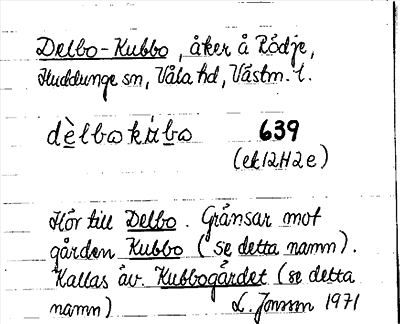 Delbo-Kubbo, åker å Rödje,
Huddunge sn, Våla hd, Västm. l.
dèlbokùbo 639
(ek12H2e)
Hör till Delbo. Gränsar mot
gården Kubbo (se detta namn).
Kallas äv. Kubbogärdet (se detta
namn) L. Jonson 1971